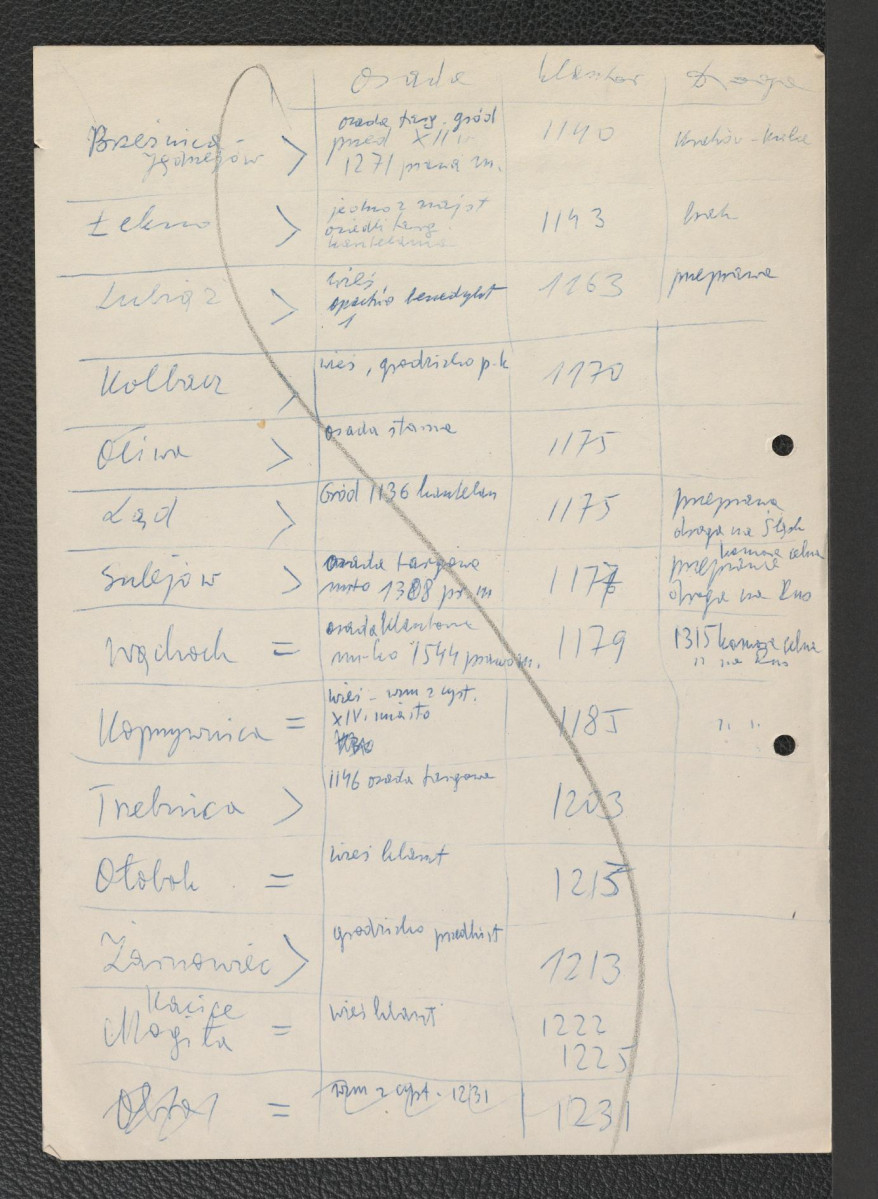 osada klasztor Droga
Brześnica -
Jędrzejów > osada targ. gród
przed XII w
1271 prawa m. 1140 Kraków -
Łekno > jedno z najst
osiedli targ.
kasztelania 1143 brak
Lubiąż > wieś
opactwo benedykt
1 1163 przeprawa
Kołbacz > wieś, grodzisko p.k 1170
Oliwa > osada starsza 1175
Ląd > Gród 1136 kasztelan 1175 przeprawa
droga na Śląsk
Sulejów > osada targowa
miasto 1308 pr. m 1177 komora celna
przeprawa
droga na Rus
Wąchock = osada klasztorna
m-ko 1544 prawo m. 1179 1315 komora celna
" na Rus
Koprzywnica = wieś - wzm z cyst.
XIV. miasto 1185 " "
Trzebnica > 1146 osada targowa 1203
Ołobok = wieś klaszt 1215
Żarnowiec > grodzisko przedhist 1213
Kacice
Mogiła = wieś klaszt 1222
1225
Obra = wzm z cyst. 1231 1231